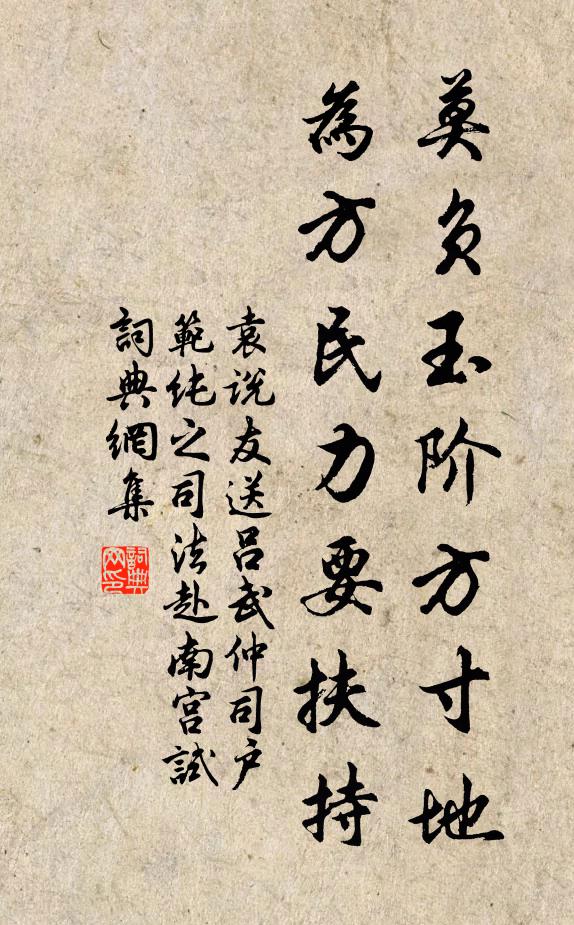 莫负玉阶方寸地
為方民力要扶持
袁说友送吕武仲司户
範纯之司法赴南宫試
詞典網集
詞典网印